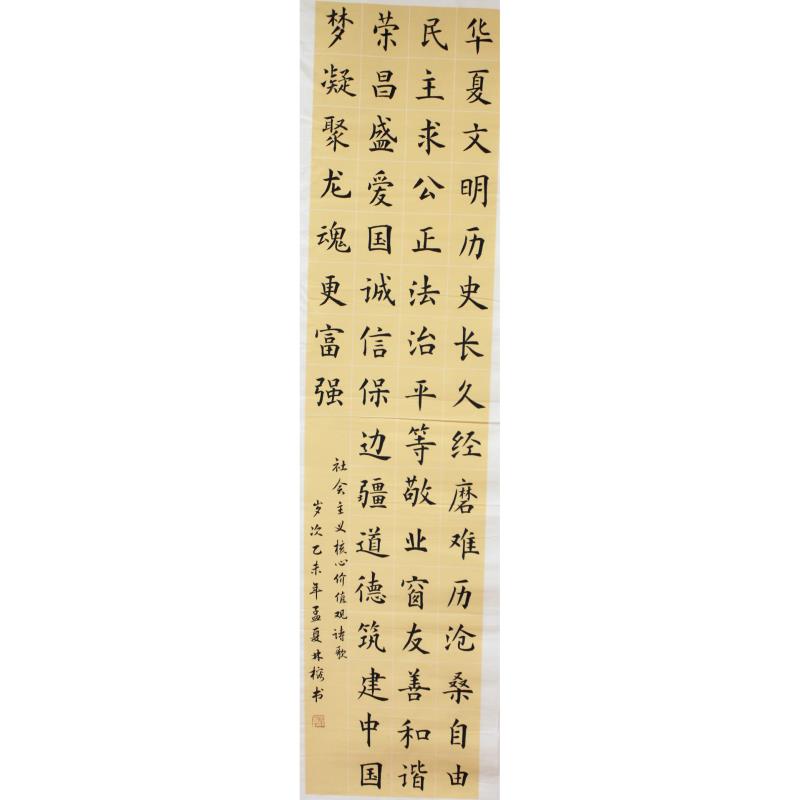 华夏文明历史长久经磨难历沧桑自由
民主求公正法治平等敬业窗友善和谐
荣昌盛爱国诚信保边疆道德筑建中国
梦凝聚龙魂更富强
社会主义核心价值观诗歌
岁次乙未年孟夏林榕书